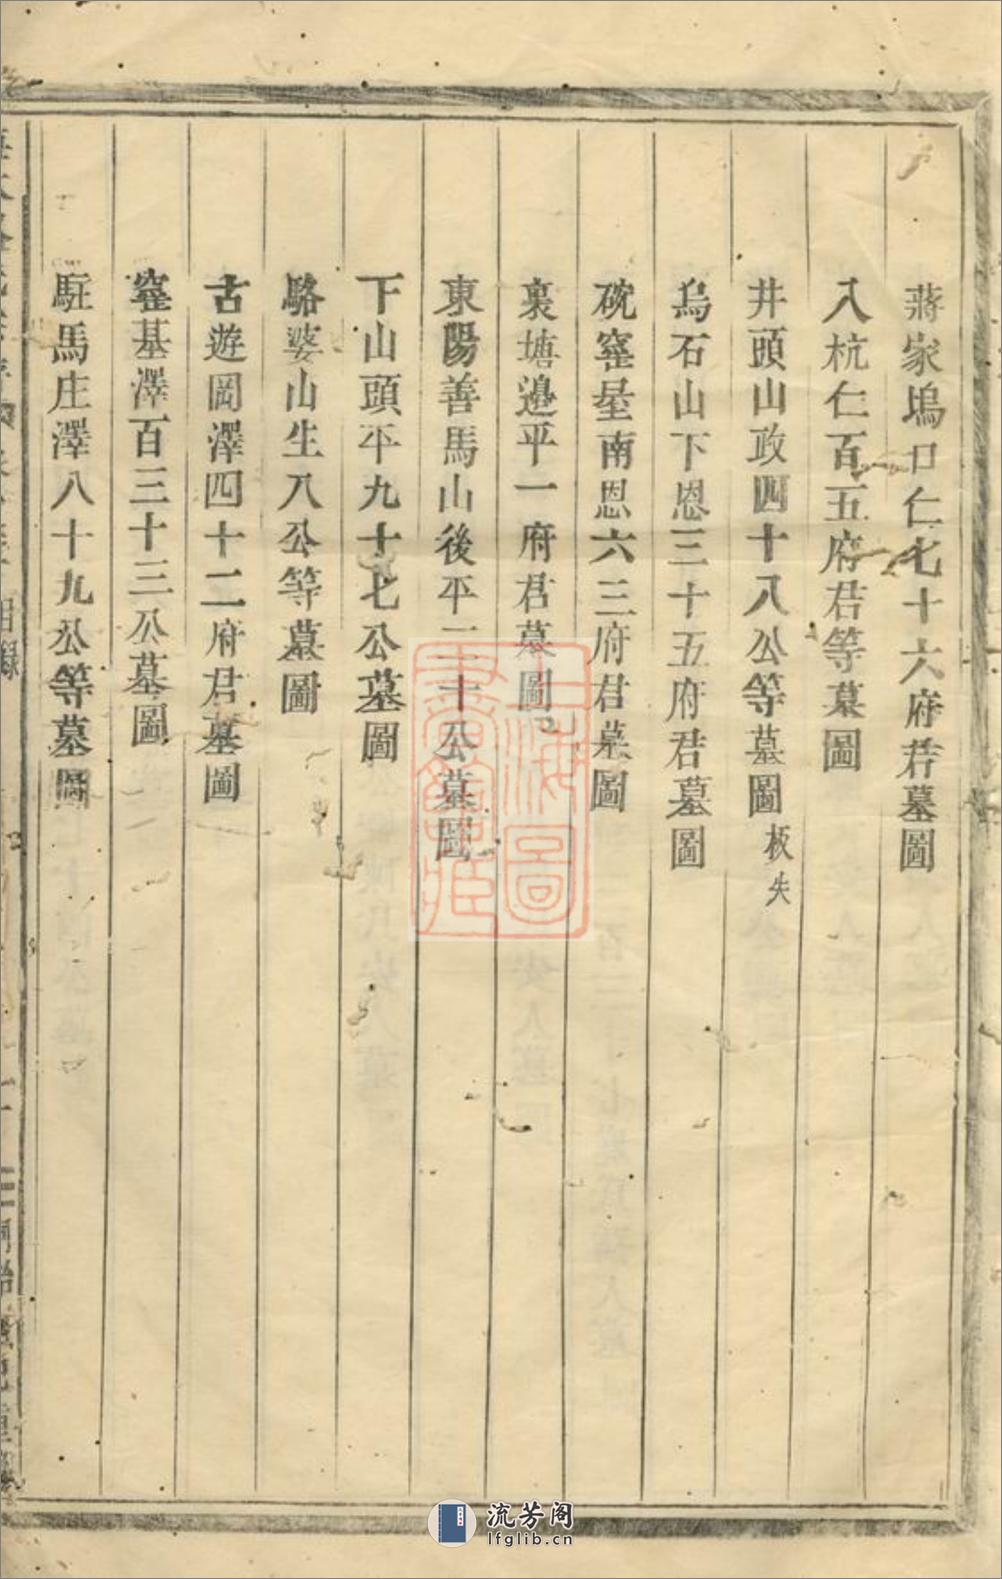 蔣家塢口仁七十六府君墓圖
入杭仁百五府君等墓圖
井頭山政四十八公等墓圖 板失
烏石山下恩三十五府君墓圖
硴窰星南恩六三府君墓圖
裏塘邊平一府君墓圖
東陽善馬山後平二十公墓圖
下山頭平九十七公墓圖
駱婆山生八公等墓圖
古遊岡澤四十二府君墓圖
窰基澤百三十三公墓圖
駐馬庄澤八十九公等墓圖
目錄
上海圖書館藏
流芳阁
lfglib.cn